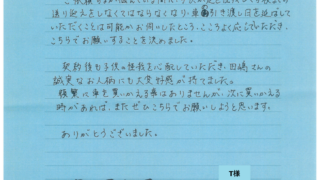 送り迎えをしなくてはならなくなり、車の引き渡し日を延ばして
いただくことは可能かお伺いしたところ、こころよく応じていただき、
こちらでお願いすることを決めました。
契約後も子供の怪我を心配していただき、田嶋さんの
誠実なお人柄にも大変好感が持てました。
頻繁に車を買いかえる事はありませんが、次に買いかえる
時があれば、またぜひこちらでお願いしようと思います。
ありがとうございました。
T様